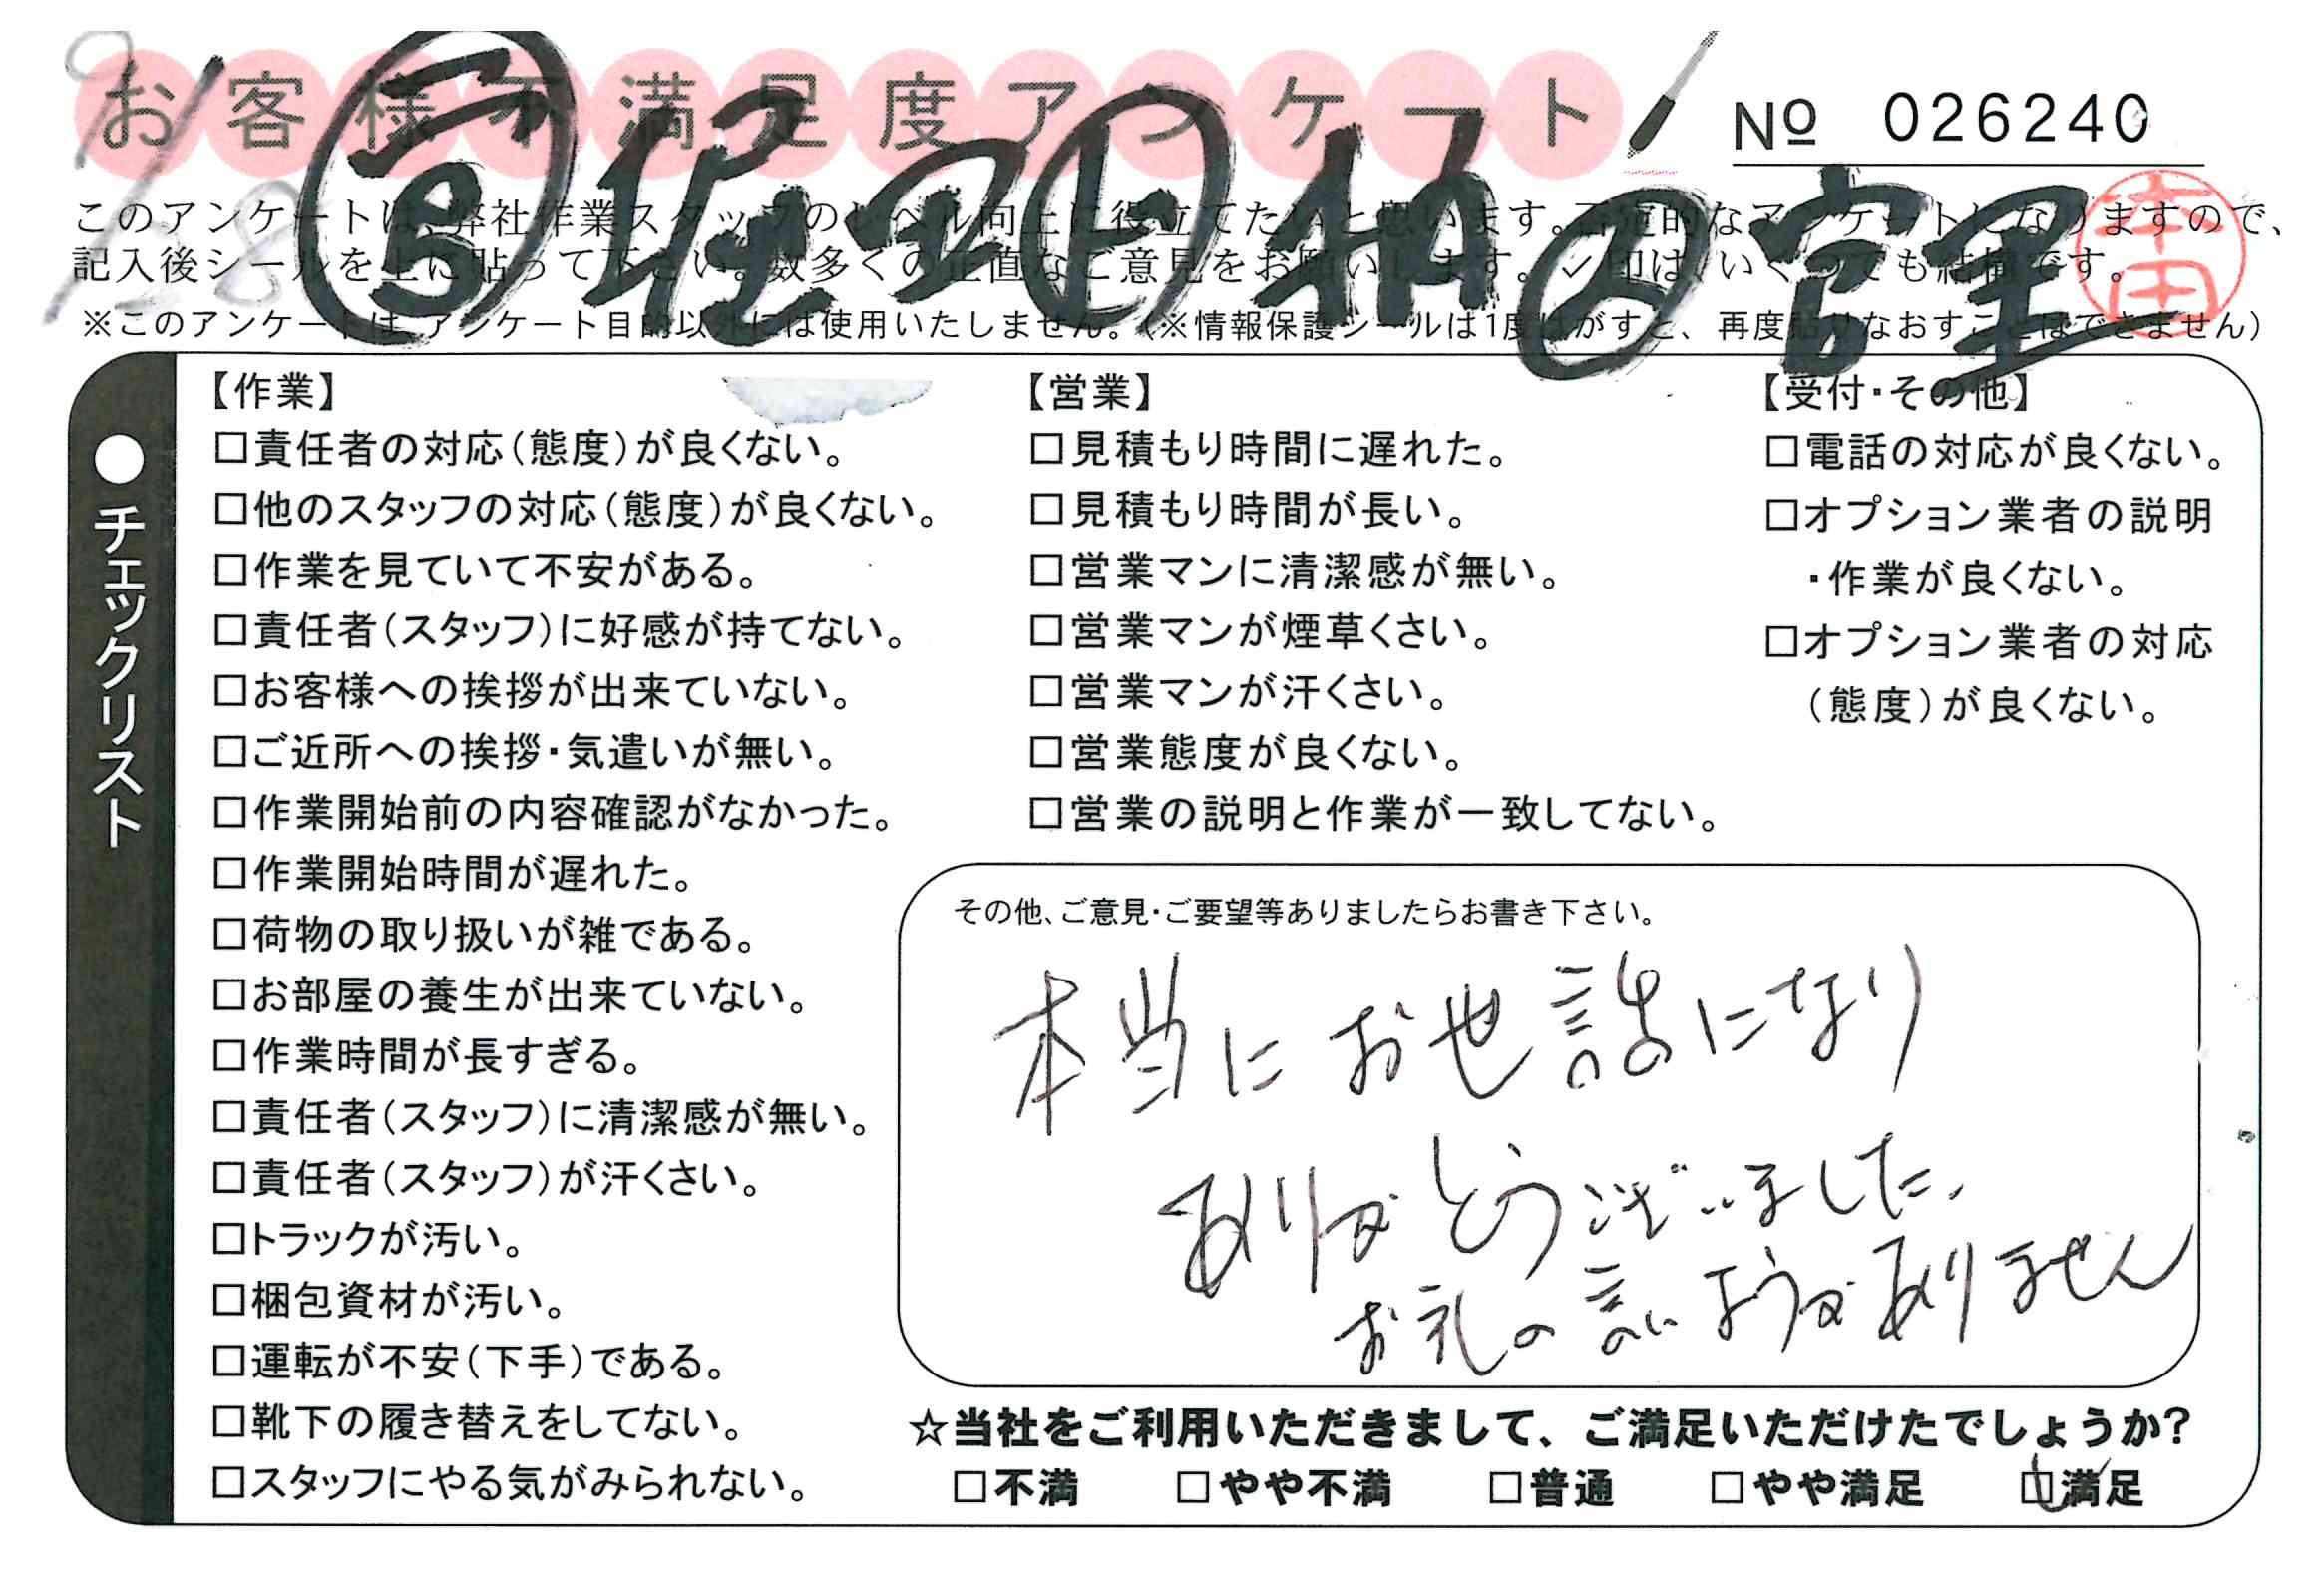 お客様不満足度アンケート
№ 026240
9/28
このアンケートは、弊社作業スタッフのレベル向上に役立てたいと思います。否定的なアンケートとなりますので、
記入後シールを上に貼って下さい。数多くの正直なご意見をお願いします。✓印は、いくつでも結構です。
※このアンケートは、アンケート目的以外には使用いたしません。(※情報保護シールは1度はがすと、再度貼りなおすことはできません)
本田
●チェックリスト
【作業】
□責任者の対応(態度)が良くない。
□他のスタッフの対応(態度)が良くない。
□作業を見ていて不安がある。
□責任者(スタッフ)に好感が持てない。
□お客様への挨拶が出来ていない。
□ご近所への挨拶・気遣いが無い。
□作業開始前の内容確認がなかった。
□作業開始時間が遅れた。
□荷物の取り扱いが雑である。
□お部屋の養生が出来ていない。
□作業時間が長すぎる。
□責任者(スタッフ)に清潔感が無い。
□責任者(スタッフ)が汗くさい。
□トラックが汚い。
□梱包資材が汚い。
□運転が不安(下手)である。
□靴下の履き替えをしてない。
□スタッフにやる気がみられない。
【営業】
□見積もり時間に遅れた。
□見積もり時間が長い。
□営業マンに清潔感が無い。
□営業マンが煙草くさい。
□営業マンが汗くさい。
□営業態度が良くない。
□営業の説明と作業が一致してない。
【受付・その他】
□電話の対応が良くない。
□オプション業者の説明
・作業が良くない。
□オプション業者の対応
(態度)が良くない。
その他、ご意見・ご要望等ありましたらお書き下さい。
本当にお世話になり
ありがとうございました、
お礼の言いようがありません
☆当社をご利用いただきまして、ご満足いただけたでしょうか?
□不満 □やや不満 □普通 □やや満足 ☑満足